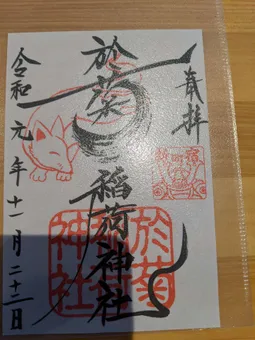 奉拝
於菊稲荷神社
令和元年十一月二十二日
於菊
神社